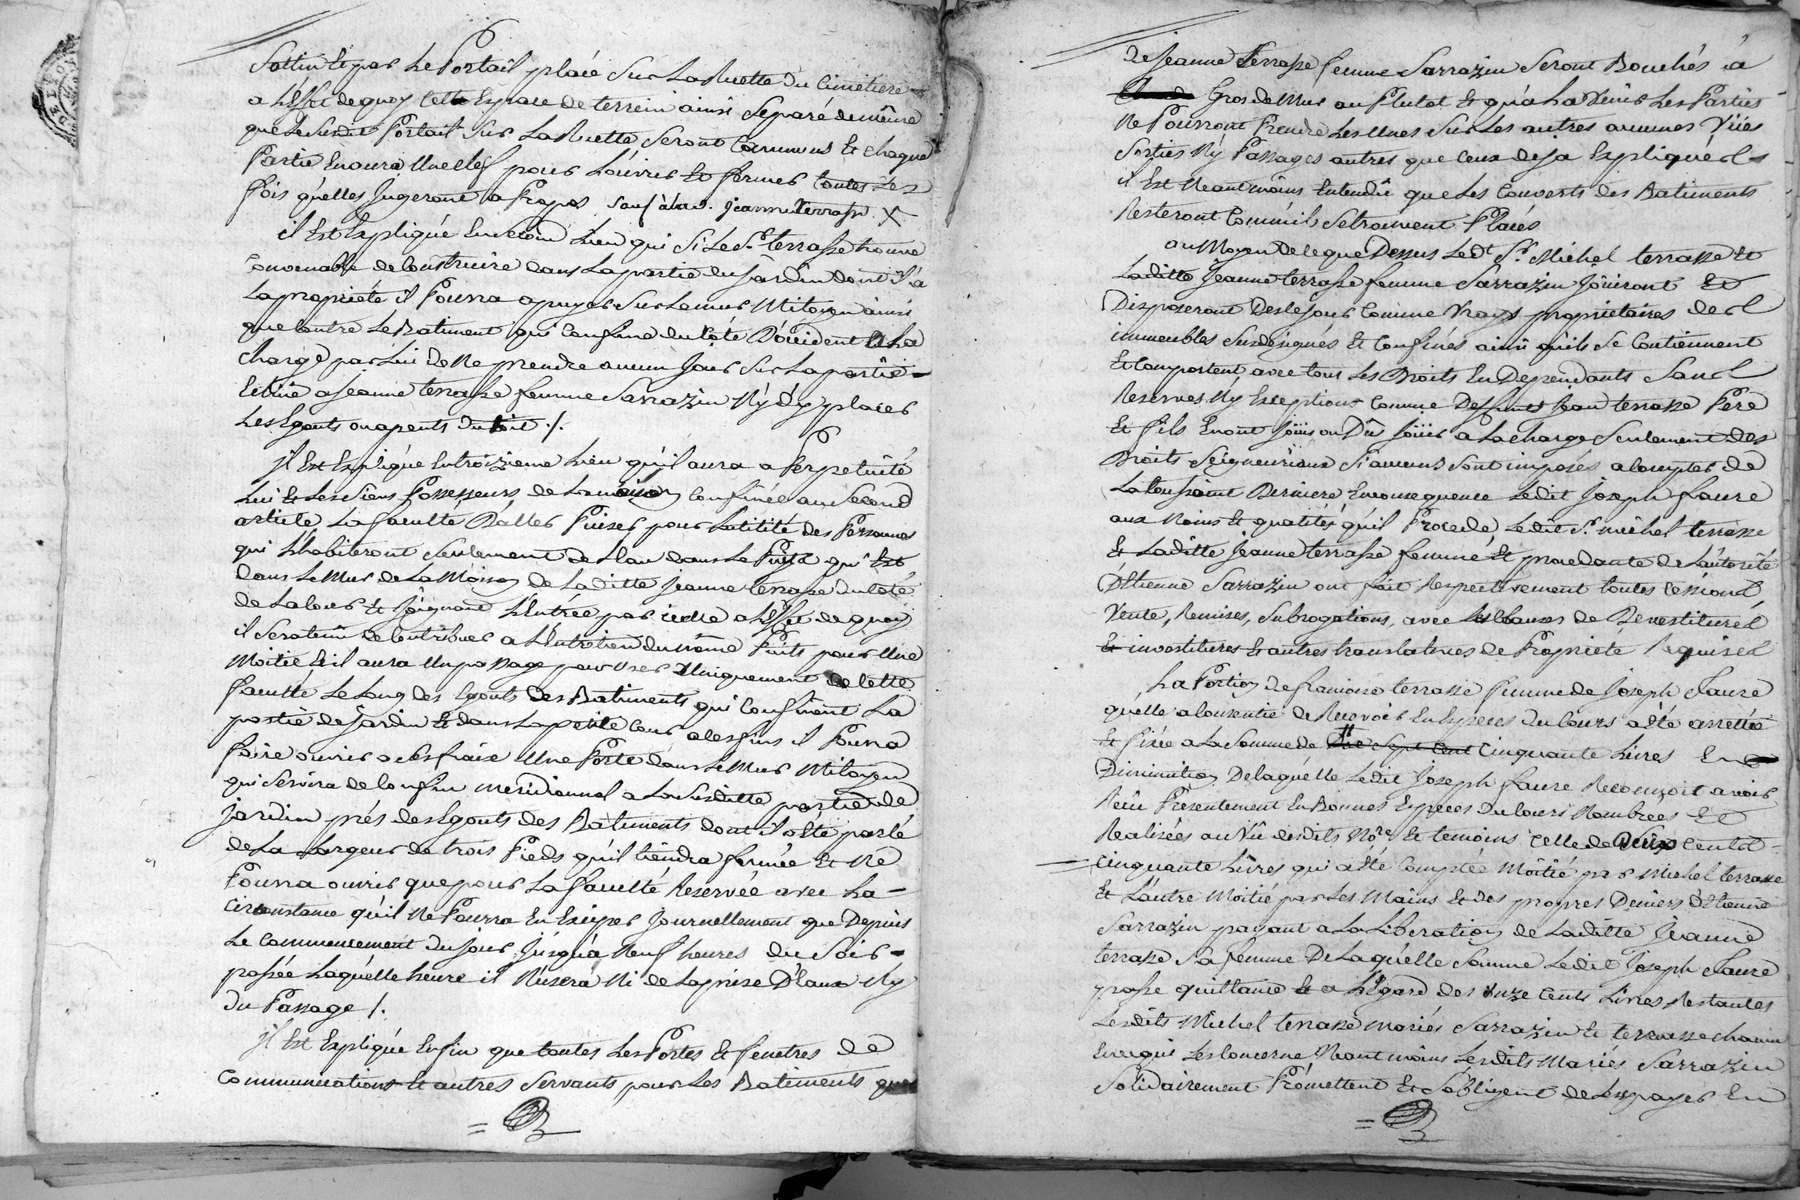 Sottin et par le Portail placé Sur La Ruette du Cimetiere
a L'effet de quoy Cette Espace de terrein ainsi Separé de même
que le Susdit Portail Sur La Ruette Seront Communs Et chaque
Partie En aura Une clef pour L'ouvrir Et fermer toutes Les
fois qu'elles Jugeront a Propos Sauf à lad. Jeanne terrasse X
il Est Expliqué En Second Lieu qui Si Le Sr. terrasse trouve
Convenable de Construire dans La partie du Jardin dont il a
La propriété il Pourra apuyer Sur Le mur Mitoyen ainsi
que contre Le Batiment qui Confine du Coté D'occident a La
charge par Lui de Ne prendre aucun Jour Sur La partie
Echue a Jeanne terrasse femme Sarrazin Ny d'y placer
Les Egouts du toit ./.
il Est Expliqué En troizieme Lieu qu'il aura a Perpetuité
Lui Et Les Siens Possesseurs de La maison Confinée au Second
article La faculté D'aller Puiser pour L'utilité des Personnes
qui L'habiteront Seulement de L'eau dans Le Puits qui Est
dans Le Mur de La Maison de Laditte Jeanne terrasse du Coté
de La Cour Et Joignant L'Entrée par icelle a L'effet de quoy
il Sera tenû de Contribuer a L'Entretien du même Puits pour Une
Moitié Et il aura Un passage pour User Uniquement de Cette
faculté Le Long des Egouts des Batiments qui Confinent La
partie de Jardin Et dans La petite Cour a Ces fins il Pourra
faire ouvrir a Ses fraix Une Porte dans Le Mur Mitoyen
qui Servira de Confin meridionnal a La Susditte partie de
Jardin prés des Egouts des Batiments dont il a été parlé
de La Largeur de trois Pieds qu'il tiendra fermée Et Ne
Pourra ouvrir que pour La faculté Reservée avec La
circonstance qu'il Ne Pourra En Exciper Journellement que Depuis
Le Commencement du Jour Jusqu'à Neuf heures du Soir
passée Laquelle heure il N'usera Ni de La prise D'Eaux Ny
Du Passage /.
il Est Expliqué Enfin que toutes Les Portes Et fenetres de
Communications Et autres Servants pour Les Batiments
De Jeanne terrasse femme Sarrazin Seront Bouchés à
Gros de Mur au Plutot Et qu'a L'avenir Les Parties
Ne Pourront Prendre Les Unes Sur Les autres aucunes Vües
Sorties Ny Passages autres que Ceux deja Expliqués
il Est Neantmoins Entendû que Les Couverts des Batiments
Resteront Comm'ils Se trouvent Placés
au Moyen de Ce que Dessus Le dt. Sr. Michel terrasse Et
Laditte Jeanne terrasse femme Sarrazin Joüiront Et
Disposeront Des Ce Jour Comme Vrays proprietaires des
immeubles Susdesignés Et Confinés ainsi qu'ils Se Contiennent
Et Comportent avec tous Les Droits En Dependants Sans
Reserves Ny Exceptions Comme Deffunts Jean terrasse Pere
Et fils En ont Joüis ou Dû Joüir a La charge Seulement des
Droits Seigneuriaux Si aucuns Sont imposés a Compter de
La toussaint Derniere En Consequence Le dit Joseph faure
aux Noms Et qualités qu'il Procede Le dit Sr. michel terrasse
Et Laditte Jeanne terrasse femme Et procedante de L'autorité
D'Etienne Sarrazin ont fait Respectivement toutes Cessions
Vente, Remises, Subrogations, avec Clauses de Devestitures
Et investitures Et autres translatives de Propriété Requises
La Portion de francoise terrasse femme de Joseph faure
quelle a Consentie de Recevoir En Especes du Cours a été arrettée
Et fixée a La Somme de Cinquante Livres En
Diminution De Laquelle Le dit Joseph faure Reconnoit avoir
Recû Presentement En Bonnes Especes Du Cours Nombrées Et
Realisées au Vû desdits Nore. Et temoins Celle de Deux Cents
Cinquante Livres qui a été Comptée Moitié par Michel terrasse
Et L'autre Moitié par Les Mains Et des propres Deniers d'Etienne
Sarrazin payant a La Liberation de Laditte Jeanne
terrasse Sa femme De Laquelle Somme Le dit Joseph faure
passe quittance Et a L'Egard des Onze Cents Livres Restantes
Lesdits Michel terrasse mariés Sarrazin Et terrasse chacun
En Ce qui Les Concerne Neantmoins Lesdits Mariés Sarrazin
Solidairement Promettent Et S'obligent de Les payer En